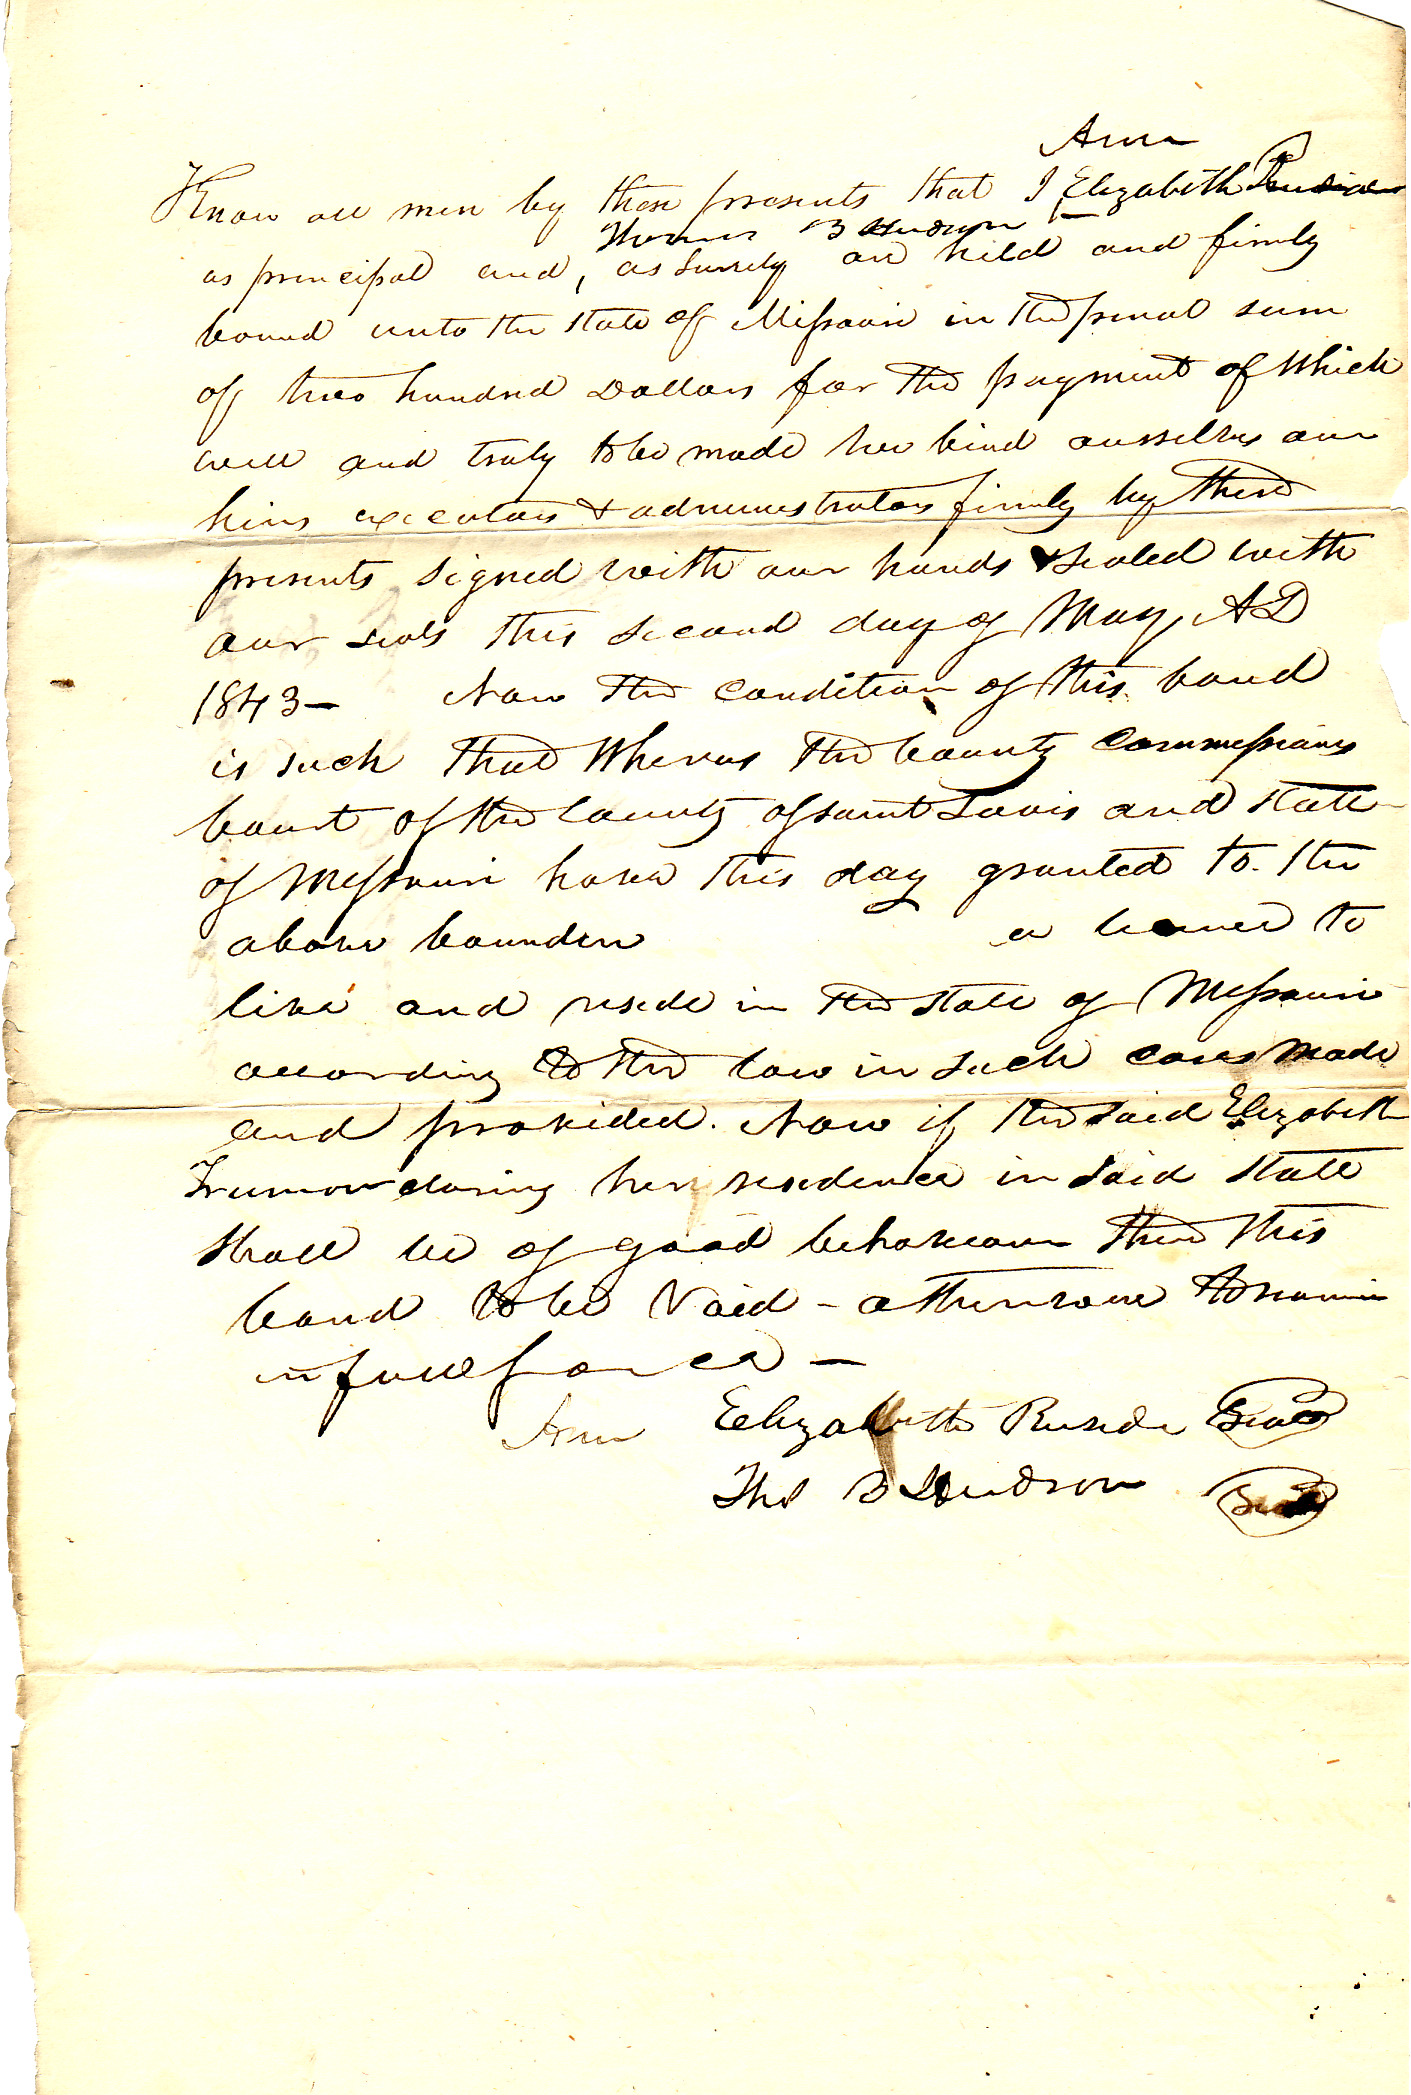 Ann
Know all men by these presents that I Elizabeth
Thomas B Hudson
as principal and, as surety are held and firmly
bound unto the state of Missouri in the penal sum
of two hundred Dollars for the payment of Which
well and truly to be made we bind ourselves our
heirs executors & administrators firmly by these
presents signed with our hands & sealed with
our seals this second day of May AD
1843 — Now the condition of this bond
is such that Whereas the County Commissions
Court of the County of saint Louis and state
of Missouri have this day granted to the
above bounden a license to
live and reside in the state of Missouri
according to the law in such cases made
and provided. Now if the said Elizabeth
during her residence in said state
shall be of good behaviour then this
bond to be Void - otherwise to remain
in full force —
Ann Elizabeth Seal
Thos B Hudson Seal